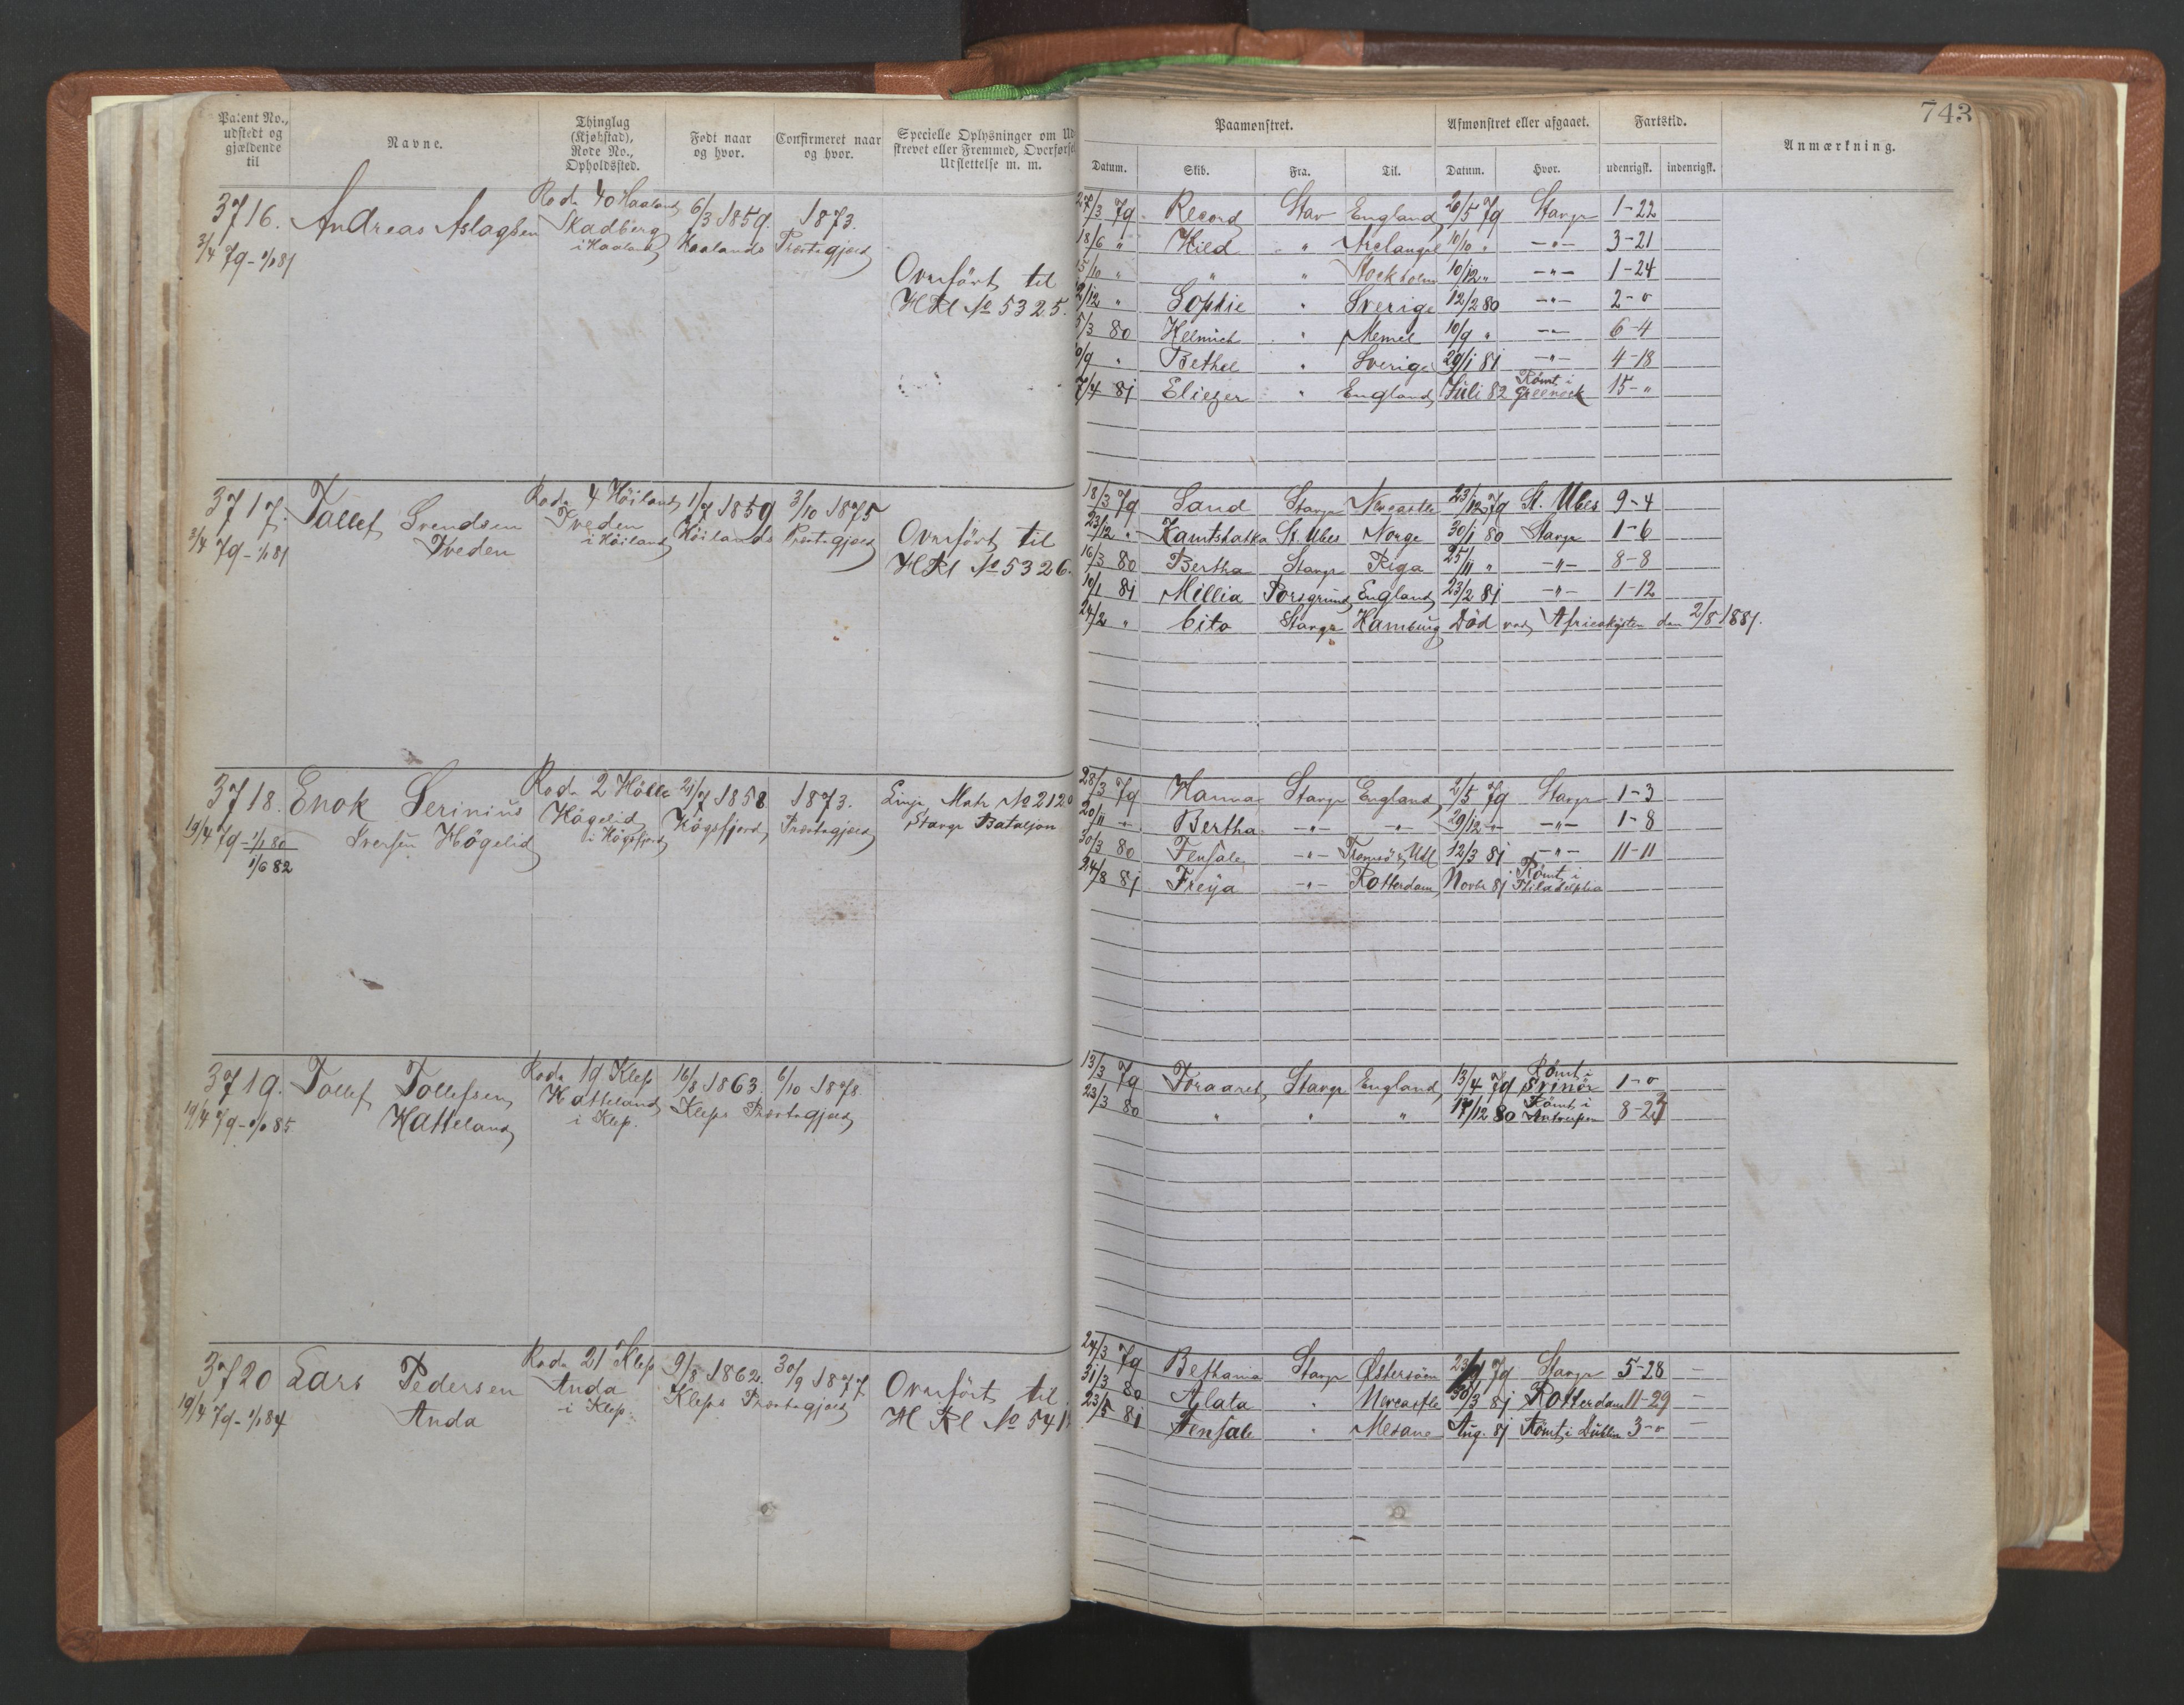 743
Patent No., udstedt og gjældende til
Navne.
Thinglag (Kjøbstad), Rode No., Opholdssted.
Født naar og hvor.
Confirmeret naar og hvor.
Specielle Oplysninger om Ud
strevet eller Fremmed, Overførsel
Udslettelse m. m.
Paamønstret.
Afmønstret eller afgaaet.
Fartstid.
Anmærkning.
Datum. Skib. Fra. Til. Datum. Hvor. udenrigsk. indenrigsk.
3716. Andreas Aslagsen Rode 40 Haaland 6/3 1859. 1873.
3/4 79 - 1/1 81 Skadberg i Haaland Haalands Præstegjæld
Overført til
HRl No 5325.
27/3 79 Record Stav England 20/5 79 Stavgr 1-22
18/6 " Hild " Archangel 10/10 " -"- 3-21
15/10 " " " Stockholm 10/12 " -"- 1-24
12/12 " Sophie " Sverige 12/2 80 -"- 2-0
5/3 80 Helmich " Memel 10/9 " -"- 6-4
10/9 " Bethel " Sverige 29/1 81 -"- 4-18
7/4 81 Eliezer " England Juli 82 Rømt i Greenock 15-"
3717. Tallef Svendsen Rode 4 Höiland 1/7 1859 3/10 1875
3/4 79 - 1/1 81 Tveden Tveden i Höiland Höilands Præstegjæld
Overført til
HRl No 5326.
18/3 79 Sand Stavgr Newcastle 23/12 79 St. Ubes 9-4
23/12 " Kamtshatka St. Ubes Norge 30/1 80 Stavgr 1-6
16/3 80 Bertha Stavgr Riga 25/11 " -"- 8-8
10/1 81 Millia Porsgrund England 23/2 81 -"- 1-12
24/2 " Cito Stavgr Hamburg Död ved Africakysten den 2/8 1881.
3718. Enok Serinius Rode 2 Hölle 21/7 1858 1873.
19/4 79 - 1/1 80 Iversen Högelid Högelid i Högsfjord Högsfjord Præstegjæld
1/6 82
Linje Matr No 2120
Stavgr Bataljon
28/3 79 Hanna Stavgr England 2/5 79 Stavgr 1-3
20/11 - Bertha -"- -"- 29/12 - -"- 1-8
30/3 80 Fensale -"- Tromsö & Udl 12/3 81 -"- 11-11
24/8 81 Freya -"- Rotterdam Novbr 81 Rømt i Philadelphia
3719. Tollef Tollefsen Rode 19 Klep 16/8 1863. 6/10 1878.
19/4 79 - 1/1 85 Hatteland Hatteland i Klep. Kleps Præstegjæld
13/3 79 Foraaret Stavgr England 13/4 79 Rømt i Svinör 1-0
23/3 80 " " " 17/12 80 Rømt i Antwerpen 8-23
3720 Lars Pedersen Rode 21 Klep 9/8 1862. 30/9 1877.
19/4 79 - 1/1 84 Anda Anda i Klep. Kleps Præstegjæld
Overført til
H Rl No 541
24/3 79 Bethania Stavgr Østersöen 23/9 79 Stavgr 5-28 -
31/3 80 Alata " Newcastle 30/3 81 Rotterdam 11-29 -
23/5 81 Fensale " Mesane Aug. 81 Rømt i Dublin 3-0 -